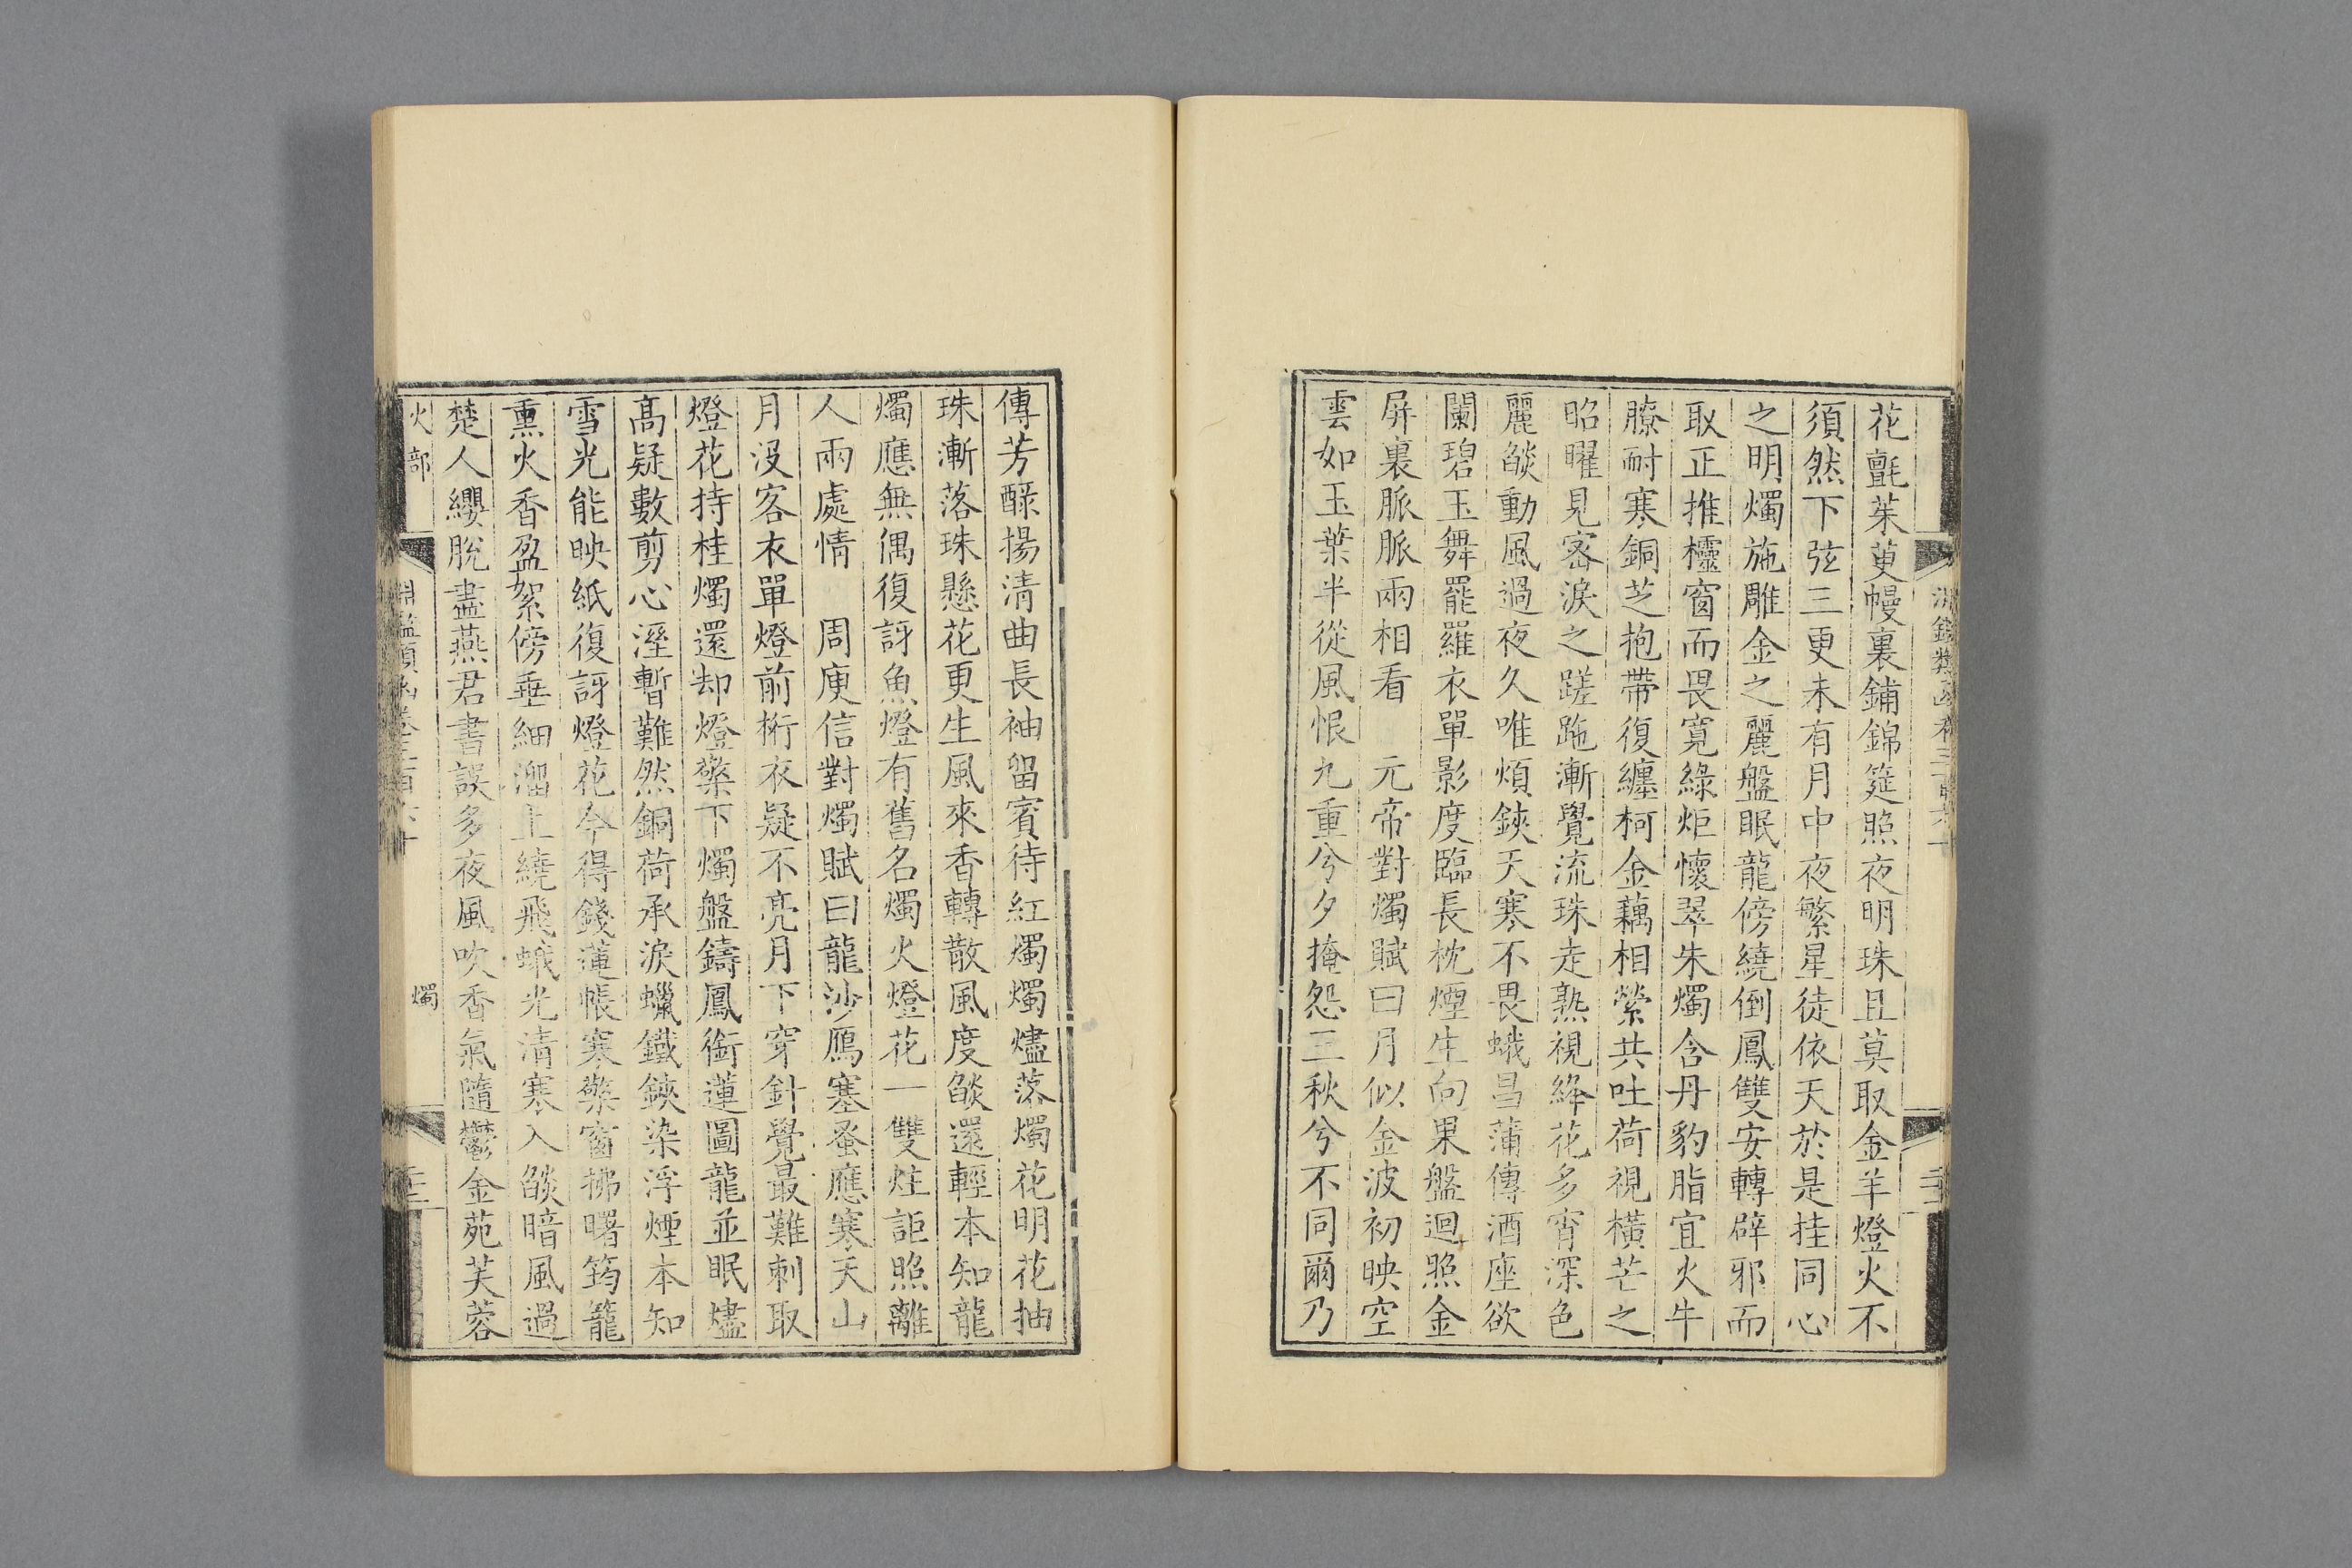 花氈茱萸幔裏鋪錦筵照夜明珠且莫取金羊燈火不
須然下弦三更未有月中夜繁星徒依天於是挂同心
之明燭施雕金之麗盤眠龍傍繞倒鳳雙安轉辟邪而
取正推欞窗而畏寬綠炬懷翠朱燭含丹豹脂宜火牛
膫耐寒銅芝抱帶復纏柯金藕相縈共吐荷視橫芒之
昭曜見密淚之蹉跎漸覺流珠走熟視絳花多宵深色
麗燄動風過夜久唯煩鋏天寒不畏蛾昌蒲傳酒座欲
闌碧玉舞罷羅衣單影度臨長枕煙生向果盤迴照金
屏裏脈脈兩相看　元帝對燭賦曰月似金波初映空
雲如玉葉半從風恨九重兮夕掩怨三秋兮不同爾乃
傳芳醁揚清曲長袖留賓待紅燭燭燼落燭花明花抽
珠漸落珠懸花更生風來香轉散風度燄還輕本知龍
燭應無偶復訝魚燈有舊名燭火燈花一雙炷詎照離
人兩處情　周庾信對燭賦曰龍沙鴈塞蚤應寒天山
月沒客衣單燈前桁衣疑不亮月下穿針覺最難刺取
燈花持桂燭還却燈檠下燭盤鑄鳳銜蓮圖龍並眠燼
高疑數剪心溼暫難然銅荷承淚蠟鐵鋏染浮煙本知
雪光能映紙復訝燈花今得錢蓮帳寒檠窗拂曙筠籠
熏火香盈絮傍垂細溜上繞飛蛾光清寒入燄暗風過
楚人纓脫盡燕君書誤多夜風吹香氣隨鬱金苑芙蓉
火部
燭